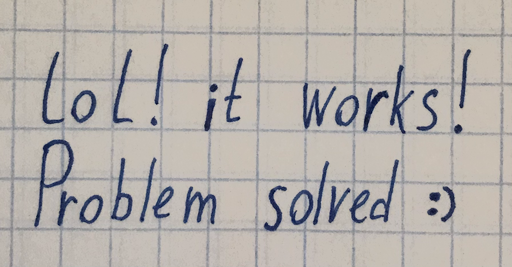 LoL! it works!
Problem solved :)